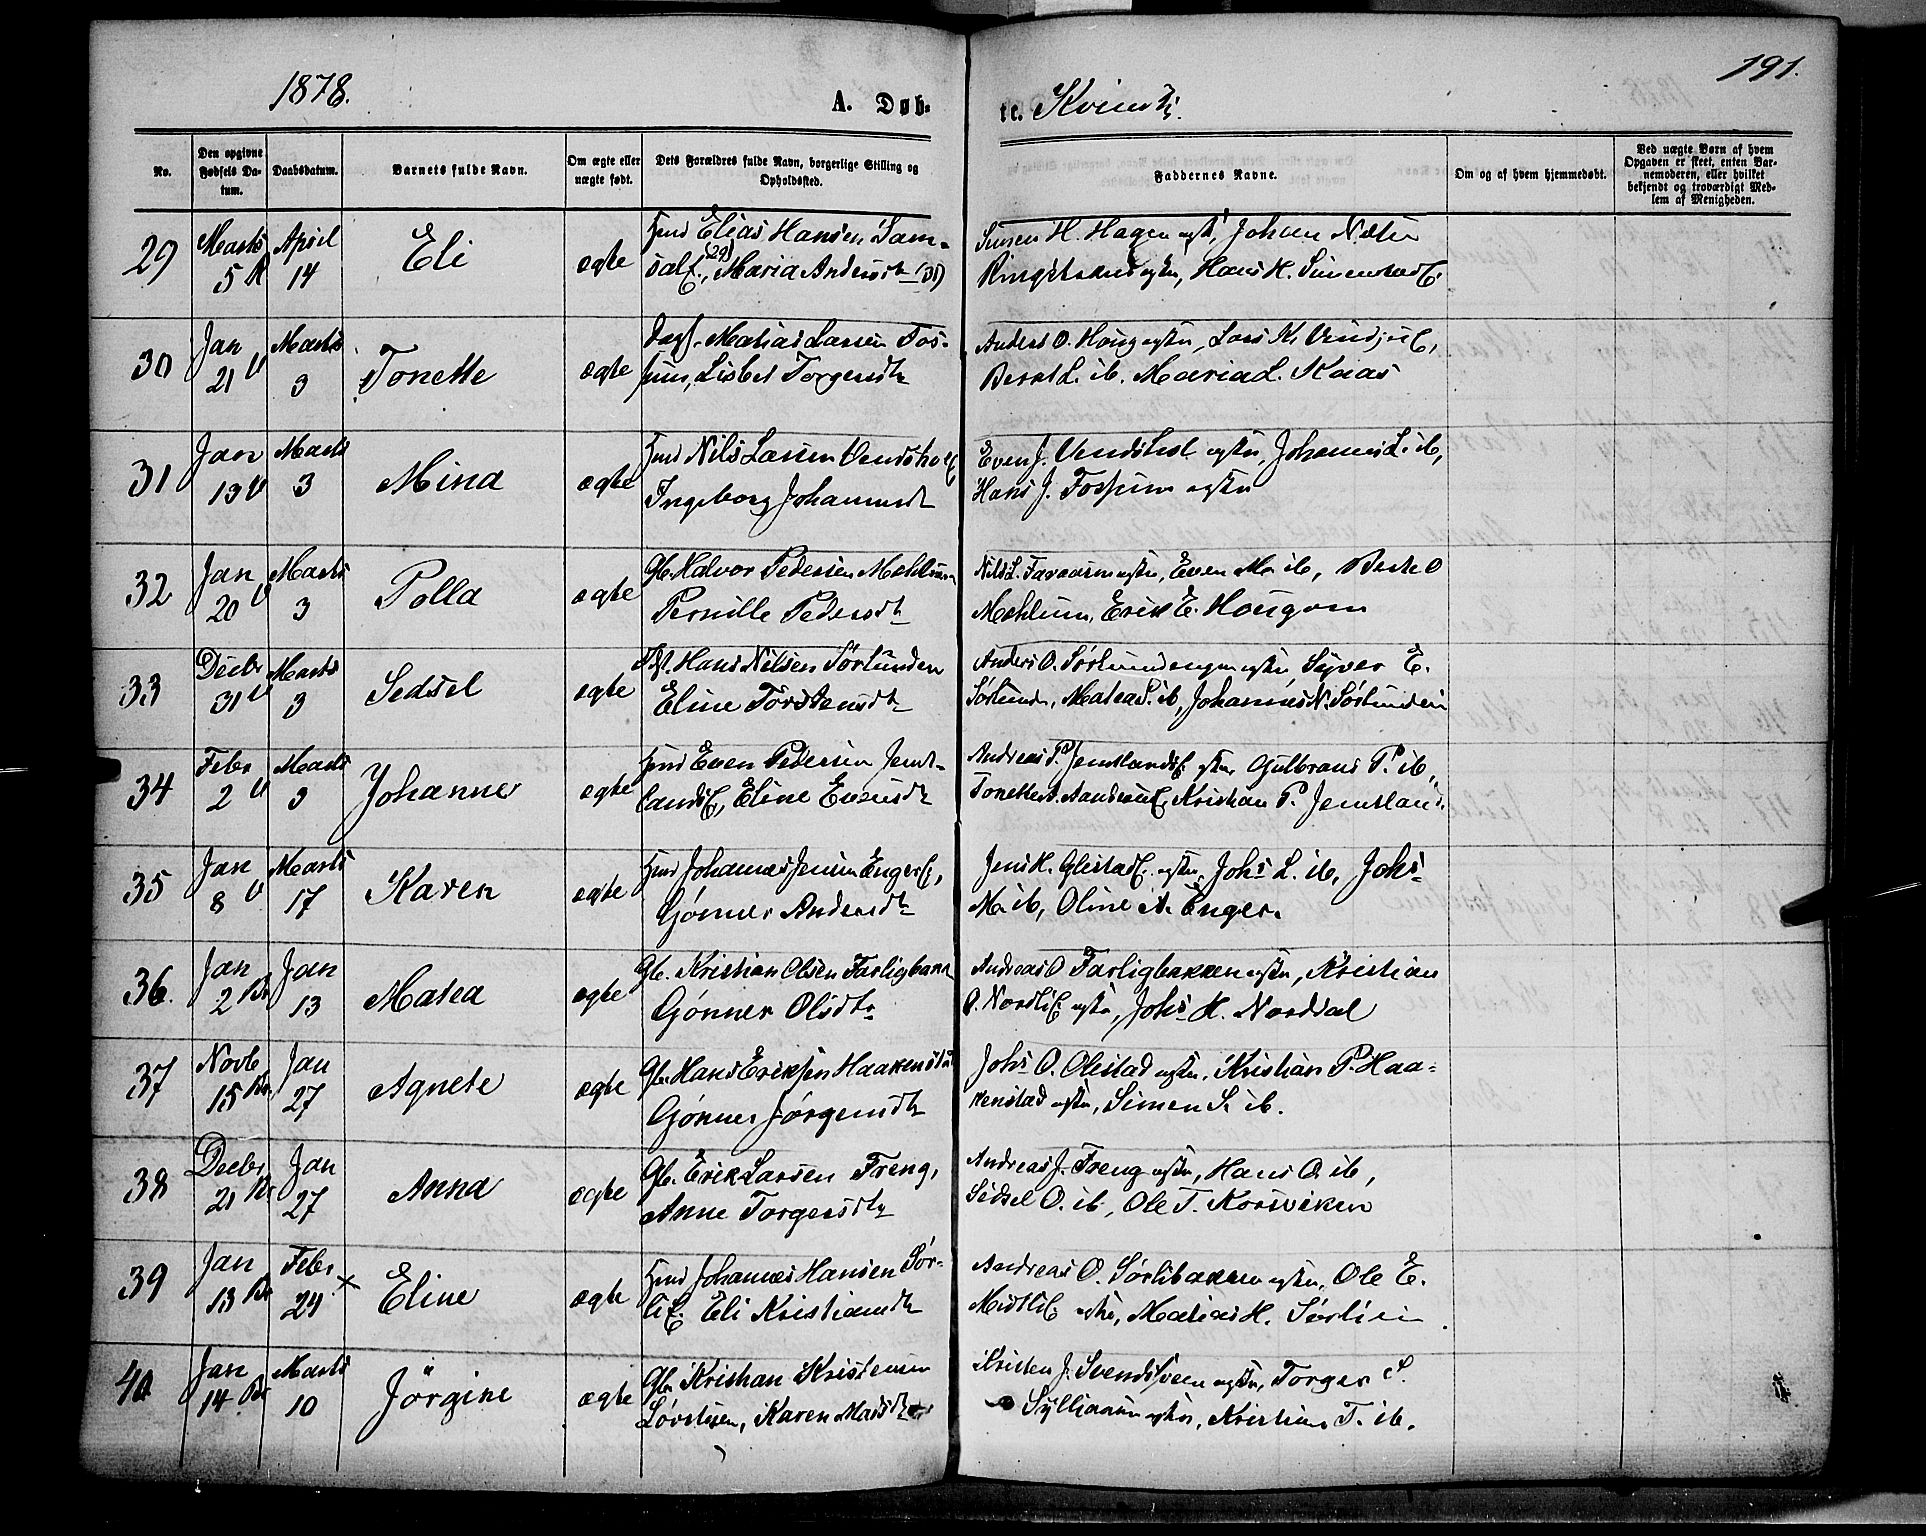 1878.
A. Døb-
te. Kvindk.
191.
No.
Den opgivne Fødsels Da-tum.
Daabsdatum.
Barnets fulde Navn.
Om ægte eller uægte født.
Dets Forældres fulde Navn, borgerlige Stilling og Opholdssted.
Faddernes Navne.
Om og af hvem hjemmedøbt.
Ved uægte Børn af hvem Opgaven er skeet, enten Bar-nemoderen, eller hvilket bekjendt og troværdigt Med-lem af Menigheden.
29 Marts 5 April 14 Eli ægte
Hmd Elias Hansen Sam-
salE. (29) Maria Andersdtr (31)
Simen H. Hagen Johan
Hans H.
30 Jan 21 V Marts 3 Tonette ægte
Dagl. Matias Larsen Fos-
sum, Lisbet Torgersdtr
Anders O. Houg Lars K.
Berte L. ib. Maria L. Kaas
31 Jan 19 V Marts 3 Mina ægte
Hmd Nils Larsen
Ingeborg Johannesdtr
Even J. Johannes L. ib,
Hans J. Fossum
32 Jan 20 V Marts 3 Polla ægte
Gb. Halvor Pedersen Mæhlum
Pernille Pedersdtr
Nils L. Even M. ib, Berte O
Mæhlum, Erik E. Hougom
33 Decbr 31 V Marts 3 Sedsel ægte
Hans Nilsen Sørlunden
Eline Torstensdtr
Anders O. Syver E.
Sørlund, Matea S. ib, Johannes N. Sørlunden
34 Febr 2 V Marts 3 Johanne ægte
Hmd Even Pedersen Jemt-
landsE, Eline Evensdtr
Andreas P. JemtlandsE. Gulbrand P. ib,
Kristian P. Jemtland
35 Jan 8 V Marts 17 Karen ægte
Hmd Johannes Jensen EngerE,
Gønner Andersdtr
Jens H. GlestadE. Johs L. ib, Johs
M. ib, Oline A. Enger.
36. Jan 2 Br Jan 13 Matea ægte
Gb. Kristian Olsen Farligbakk
Gønner Olsdtr
Andreas O Farligbakken Kristian
O. NordliE Johs H. Norddal
37 Novb 15 Br Jan 27 Agnete ægte
Gb. Hans Eriksen Haakenstad
Gønner Jørgensdtr
Johs O. Olestad Kristian P. Haa-
kenstad Simen S. ib.
38 Decbr 21 Br Jan 27 Anna ægte
Gb. Erik Larsen Freng,
Anne Torgersdtr
Andreas J. Freng Hans O. ib,
Sedsel O. ib, Ole T. Korsviken
39 Jan 13 Br Febr 24 × Eline ægte
Hmd Johannes Hansen Sør-
liE. Eli Kristiansdtr
Andreas O. Sørlibakken Ole E.
MidtliE Matias H. Sørlien
40 Jan 14 Br Marts 10 Jörgine ægte
Gb. Kristian Kristensen
Karen Madsdtr
Kristen J. Torger S.
Kristian T. ib.